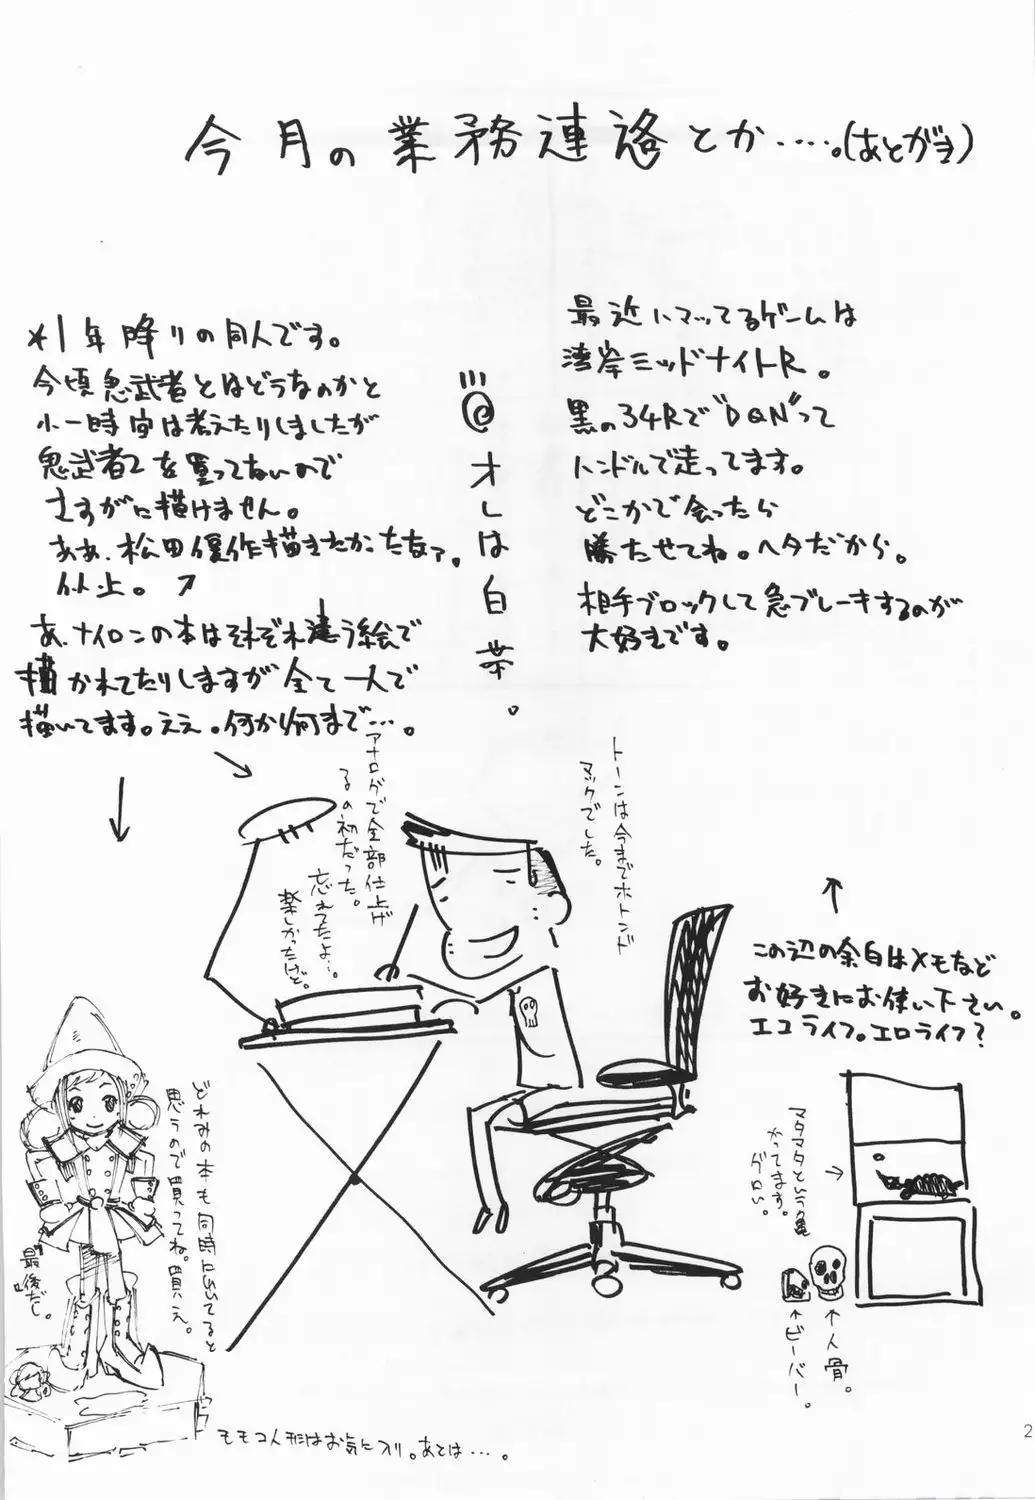 今月の業務連絡とか……。(あとがき)
最近ハマッてるゲームは
湾岸ミッドナイトR。
黒の34Rで"DQN"って
ハンドルで走ってます。
どこかで会ったら
勝たせてね。ヘタだから。
相手ブロックして急ブレーキするのが
大好きです。
オレは白
*1年降りの同人です。
今頃鬼武者とはどうなのかと
小一時間は考えたりしましたが
鬼武者2を買ってないので
さすがに描けません。
ああ、松田優作描きたかったなァ。
以上。↗
あ、ナイロンの本はそれぞれ違う絵で
描かれてたりしますが全て一人で
描いてます。ええ。何から何まで…。
トーンは今までホトンド
マックでした。
アナログで全部仕上げ
るの初だった。
忘れてたよ…。
楽しかったけど。
この辺の余白はメモなど
お好きにお使い下さい。
エコライフ。エロライフ?
マタマタという亀
かってます。
グロい。
↑人骨。
↑ビーバー。
どれみの本も同時にだしてると
思うので買ってね。買え。
『最後だし。』
モモコ人形はお気に入り。あとは…。
2